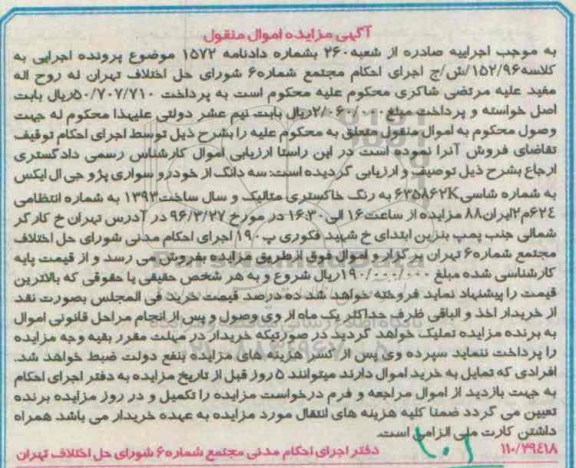 آگهی مزایده اموال منقول
به موجب اجراییه صادره از شعبه ۲۶۰ بشماره دادنامه ۱۵۷۲ موضوع پرونده اجرایی به
کلاسه ۱۵۲/۹۶/ش/ج اجرای احکام مجتمع شماره ۶ شورای حل اختلاف تهران له روح اله
مفید علیه مرتضی شاکری محکوم علیه محکوم است به پرداخت ۵۰/۷۰۷/۷۱۰ ریال بابت
اصل خواسته و پرداخت مبلغ ۲/۰۶۰/۰۰۰ ریال بابت نیم عشر دولتی علیهذا محکوم له جهت
وصول محکوم به اموال منقول متعلق به محکوم علیه را بشرح ذیل توسط اجرای احکام توقیف
تقاضای فروش آنرا نموده است در این راستا ارزیابی اموال کارشناس رسمی دادگستری
ارجاع بشرح ذیل توصیف و ارزیابی گردیده است: سه دانگ از خودرو سواری پژو جی ال ایکس
به شماره شاسی ۶۳۵۸۶۲K به رنگ خاکستری متالیک و سال ساخت ۱۳۹۳ به شماره انتظامی
۶۲٤م۲ ایران ۸۸ مزایده از ساعت ۱۶ الی ۱۶:۳۰ در مورخ ۹۶/۳/۲۷ در آدرس تهران خ کارگر
شمالی جنب پمپ بنزین ابتدای خ شهید فکوری پ ۱۹۰ اجرای احکام مدنی شورای حل اختلاف
مجتمع شماره ۶ تهران برگزار و اموال فوق از طریق مزایده بفروش می رسد و از قیمت پایه
کارشناسی شده مبلغ ۱۹۰/۰۰۰/۰۰۰ ریال شروع و به هر شخص حقیقی یا حقوقی که بالاترین
قیمت را پیشنهاد نماید فروخته خواهد شد ده درصد قیمت خرید فی المجلس بصورت نقد
از خریدار اخذ و الباقی ظرف حداکثر یک ماه از وی وصول و پس از انجام مراحل قانونی اموال
به برنده مزایده تملیک خواهد گردید در صورتیکه خریدار در مهلت مقرر بقیه وجه مزایده
را پرداخت ننماید سپرده وی پس از کسر هزینه های مزایده بنفع دولت ضبط خواهد شد.
افرادی که تمایل به خرید اموال دارند میتوانند ۵ روز قبل از تاریخ مزایده به دفتر اجرای احکام
به جهت بازدید از اموال مراجعه و فرم درخواست مزایده را تکمیل و در روز مزایده برنده
تعیین می گردد ضمنا کلیه هزینه های انتقال مورد مزایده به عهده خریدار می باشد همراه
داشتن کارت ملی الزامی است.
۱۱۰/۲۹٤۱۸ دفتر اجرای احکام مدنی مجتمع شماره ۶ شورای حل اختلاف تهران